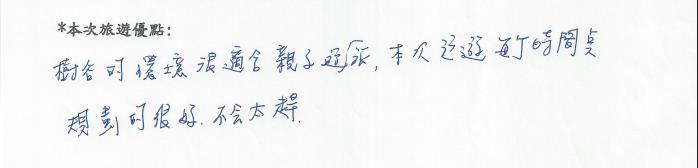 *本次旅遊優點:
樹谷的環境很適合親子遊玩,本次巡遊每個時間点
規劃的很好.不会太趕.